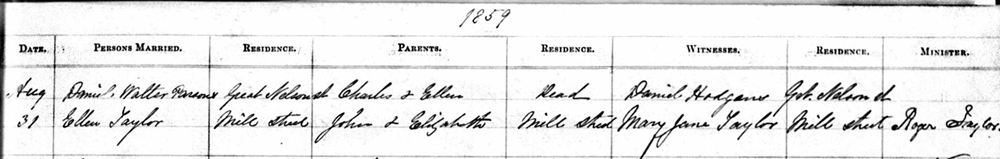 1859
DATE. PERSONS MARRIED. RESIDENCE. PARENTS. RESIDENCE. WITNESSES. RESIDENCE. MINISTER.
Aug Daniel Walter Parsons Great Nelson st Charles & Ellen Dead Daniel Hodgens Gt. Nelson st
31 Ellen Taylor Mill street John & Elizabeth Mill street Mary Jane Taylor Mill street Roger Taylor